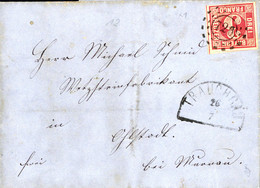 Herrn Michael Schmid
Wetzsteinfabrikant
in
Ohlstadt.
frei bei Murnau.
TRAUCHGAU
26
7